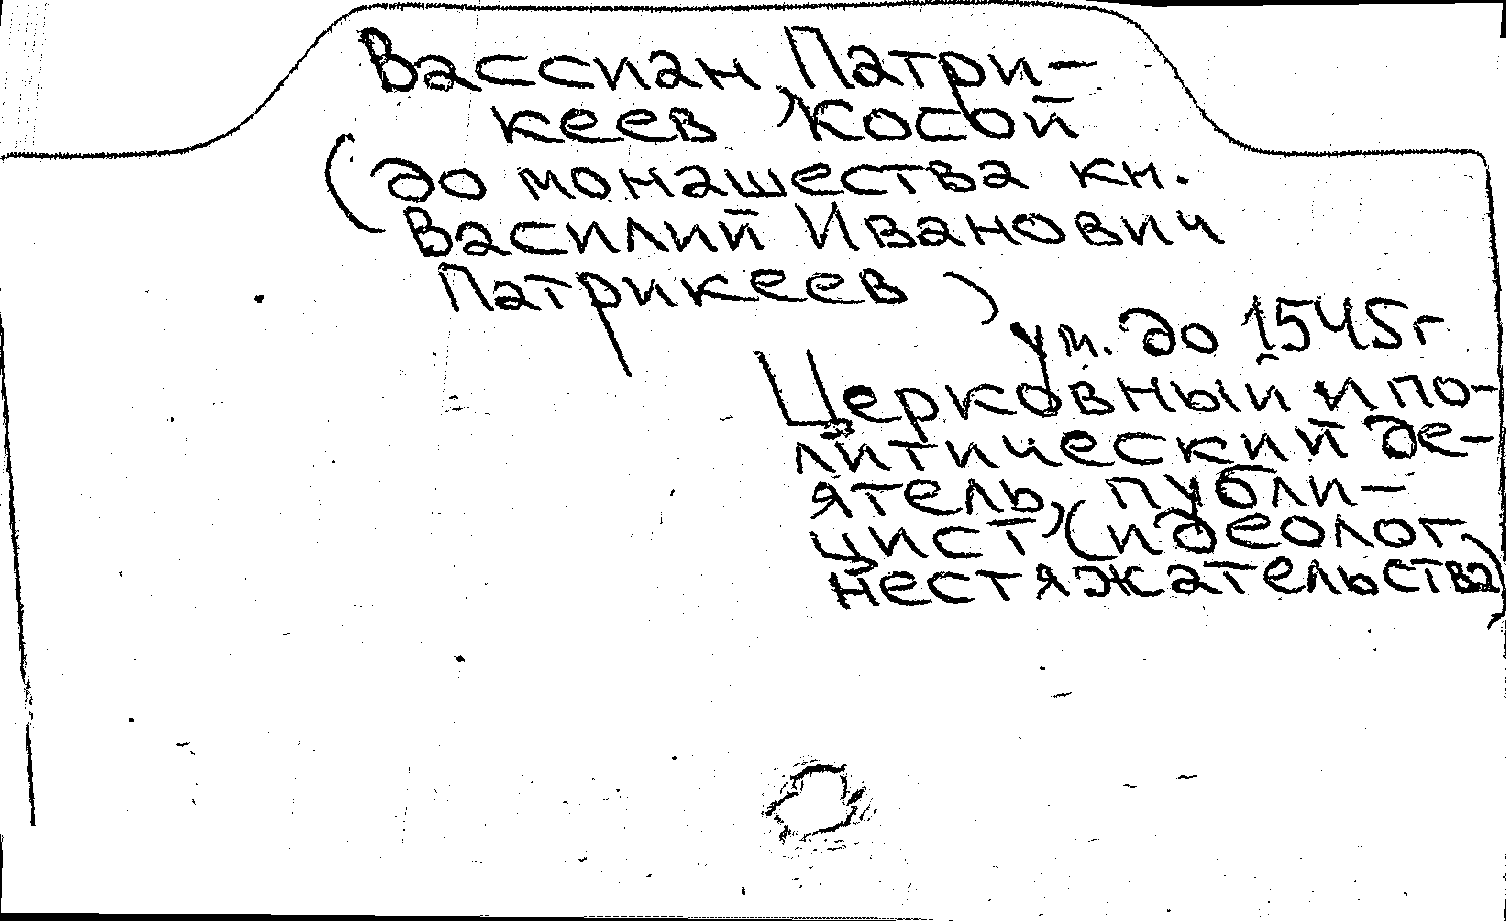 Вассиан Патри-
кеев, Косой
(до монашества кн.
Василий Иванович
Патрикеев)
ум. до 1545г
Церковный и по-
литический де-
ятель, публи-
цист, (идеолог
нестяжательства)